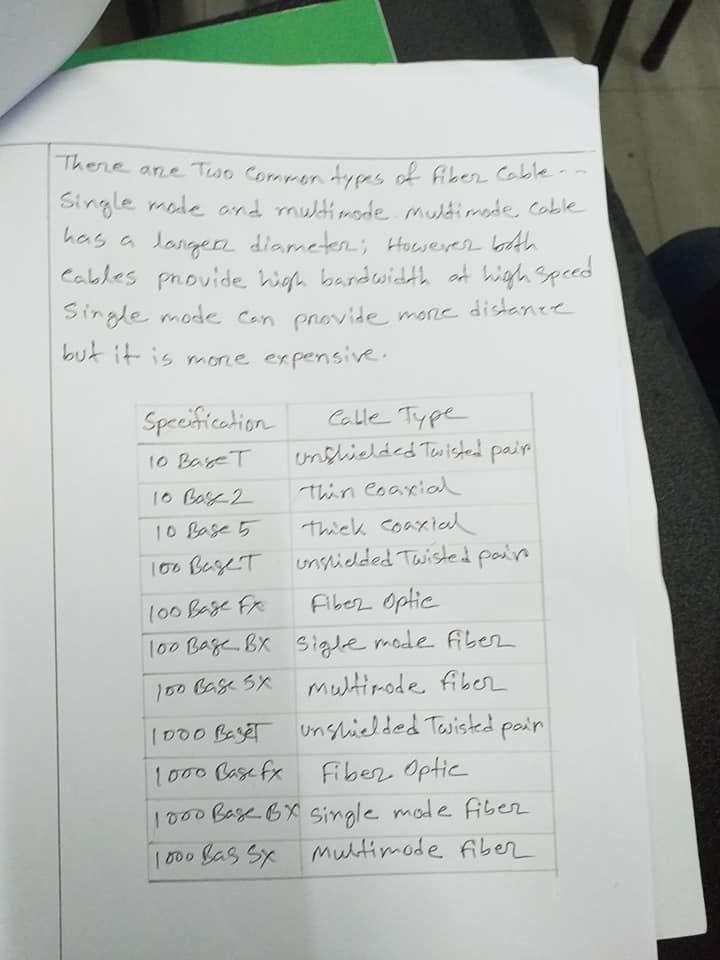 There are Two Common types of fiber Cable--
Single mode and multimode. multimode Cable
has a larger diameter; However both
Cables provide high bandwidth at high speed
Single mode can provide more distance
but it is more expensive.
Specification Cable Type
10 Base T unshielded Twisted pair
10 Base 2 Thin Coaxial
10 Base 5 Thick Coaxial
100 Base T unshielded Twisted pair
100 Base Fx Fiber Optic
100 Base BX Sigle mode fiber
100 Base SX Multimode fiber
1000 BaseT unshielded Twisted pair
1000 Base fx Fiber Optic
1000 Base BX Single mode fiber
1000 Bas Sx Multimode fiber